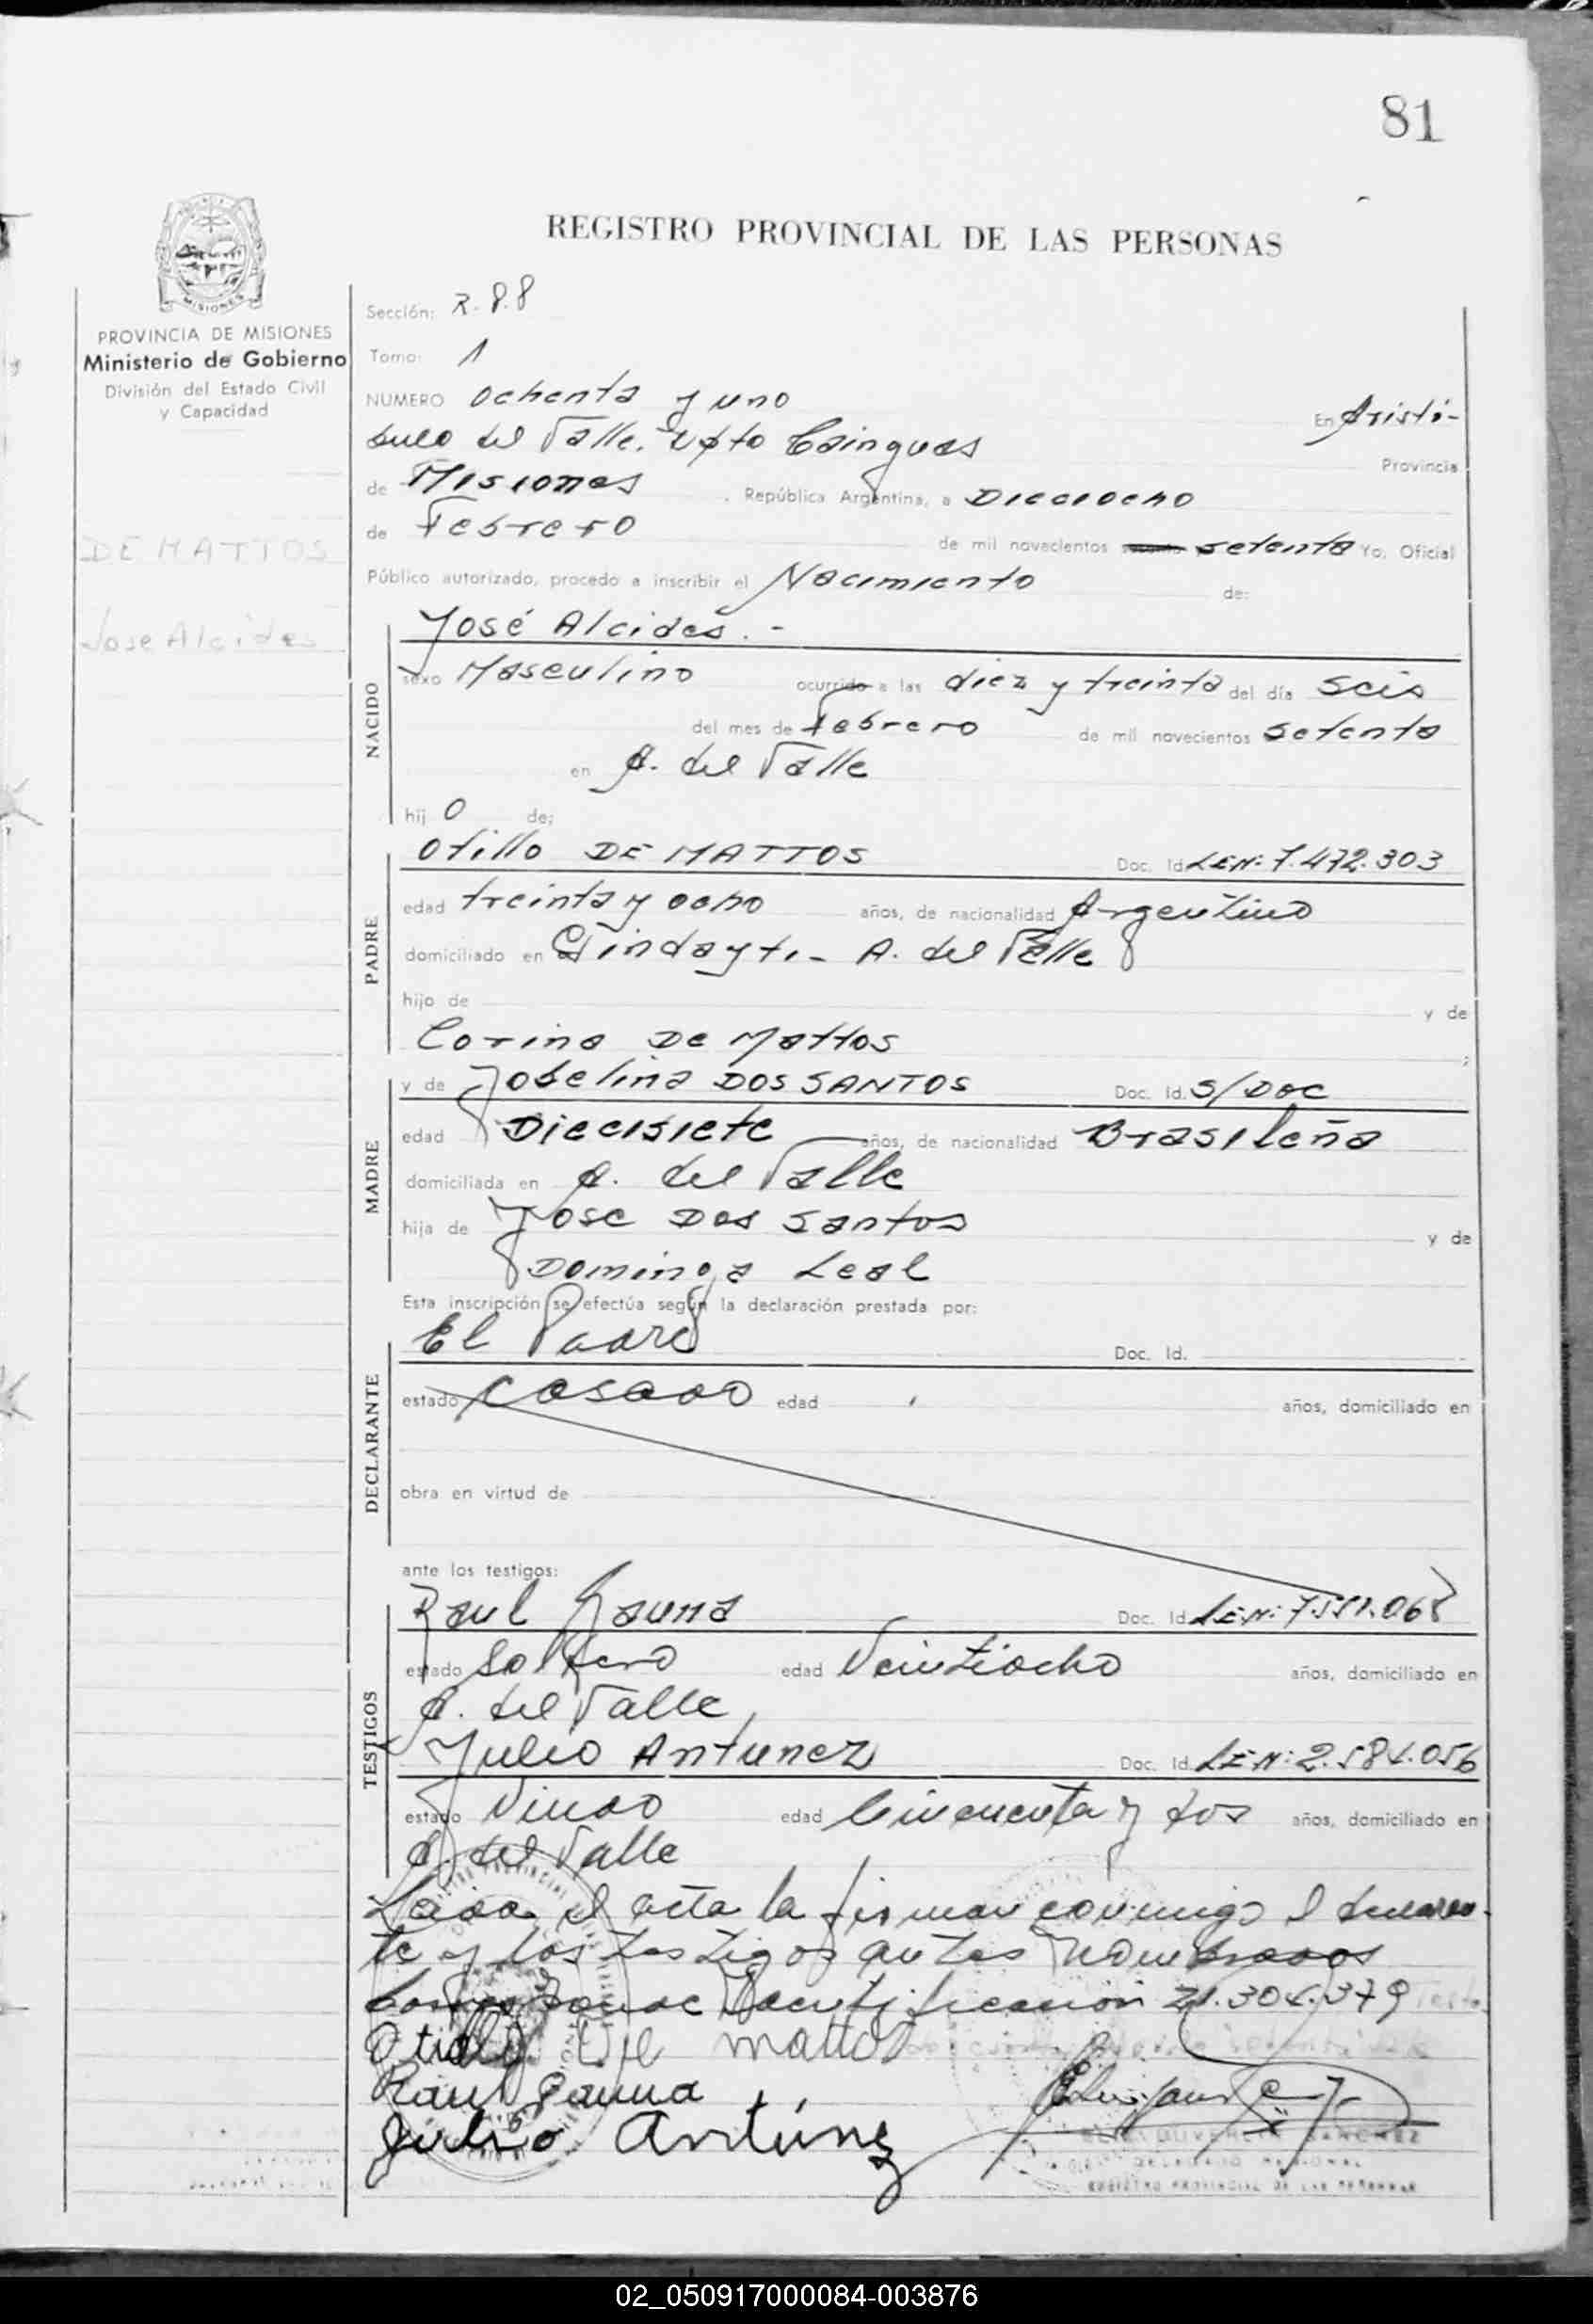 81
REGISTRO PROVINCIAL DE LAS PERSONAS
MISIONES
PROVINCIA DE MISIONES
Ministerio de Gobierno
División del Estado Civil
y Capacidad
DE MATTOS
Jose Alcides
Sección: R. 88
Tomo: 1
NUMERO Ochenta y uno En Aristó-
bulo del Valle. Dpto Cainguas Provincia
de Misiones , República Argentina, a Dieciocho
de Febrero de mil novecientos setenta Yo, Oficial
Público autorizado, procedo a inscribir el Nacimiento de:
NACIDO
José Alcides. -
sexo Masculino ocurrido a las diez y treinta del día seis
del mes de Febrero de mil novecientos setenta
en A. del Valle
hij o de:
PADRE
Otillo DE MATTOS Doc. Id. L.E.Nº: 7.472.303
edad treinta y ocho años, de nacionalidad Argentino
domiciliado en Pindayti - A. del Valle
hijo de y de
Corina De Mattos ;
MADRE
y de Jobelina DOS SANTOS Doc. Id. S/Doc
edad Diecisiete años, de nacionalidad Brasileña
domiciliada en A. del Valle
hija de Jose Dos Santos y de
Dominga Leal
Esta inscripción se efectúa según la declaración prestada por:
DECLARANTE
El Padre Doc. Id.
estado casado edad años, domiciliado en
obra en virtud de
ante los testigos:
TESTIGOS
Raul Gauna Doc. Id. L.E.Nº: 7.551.068
estado Soltero edad Veintiocho años, domiciliado en
A. del Valle
Julio Antunez Doc. Id. L.E.Nº: 2.584.056
estado Viudo edad Cincuenta y dos años, domiciliado en
A. del Valle
Leida el acta la firman conmigo el declaran-
te y los testigos antes nombrados
Identificación 21.304.379
Otillo De mattos
Raul Gauna
Julio Antúnez
SANCHEZ
REGISTRO PROVINCIAL DE LAS PERSONAS
02_050917000084-003876